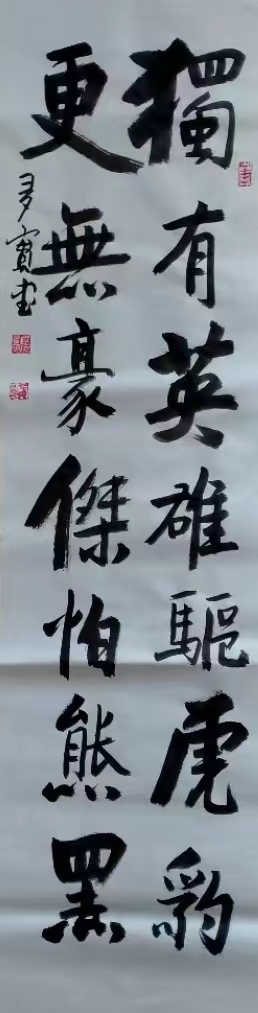 獨有英雄驅虎豹
更無豪傑怕熊羆
多寳书